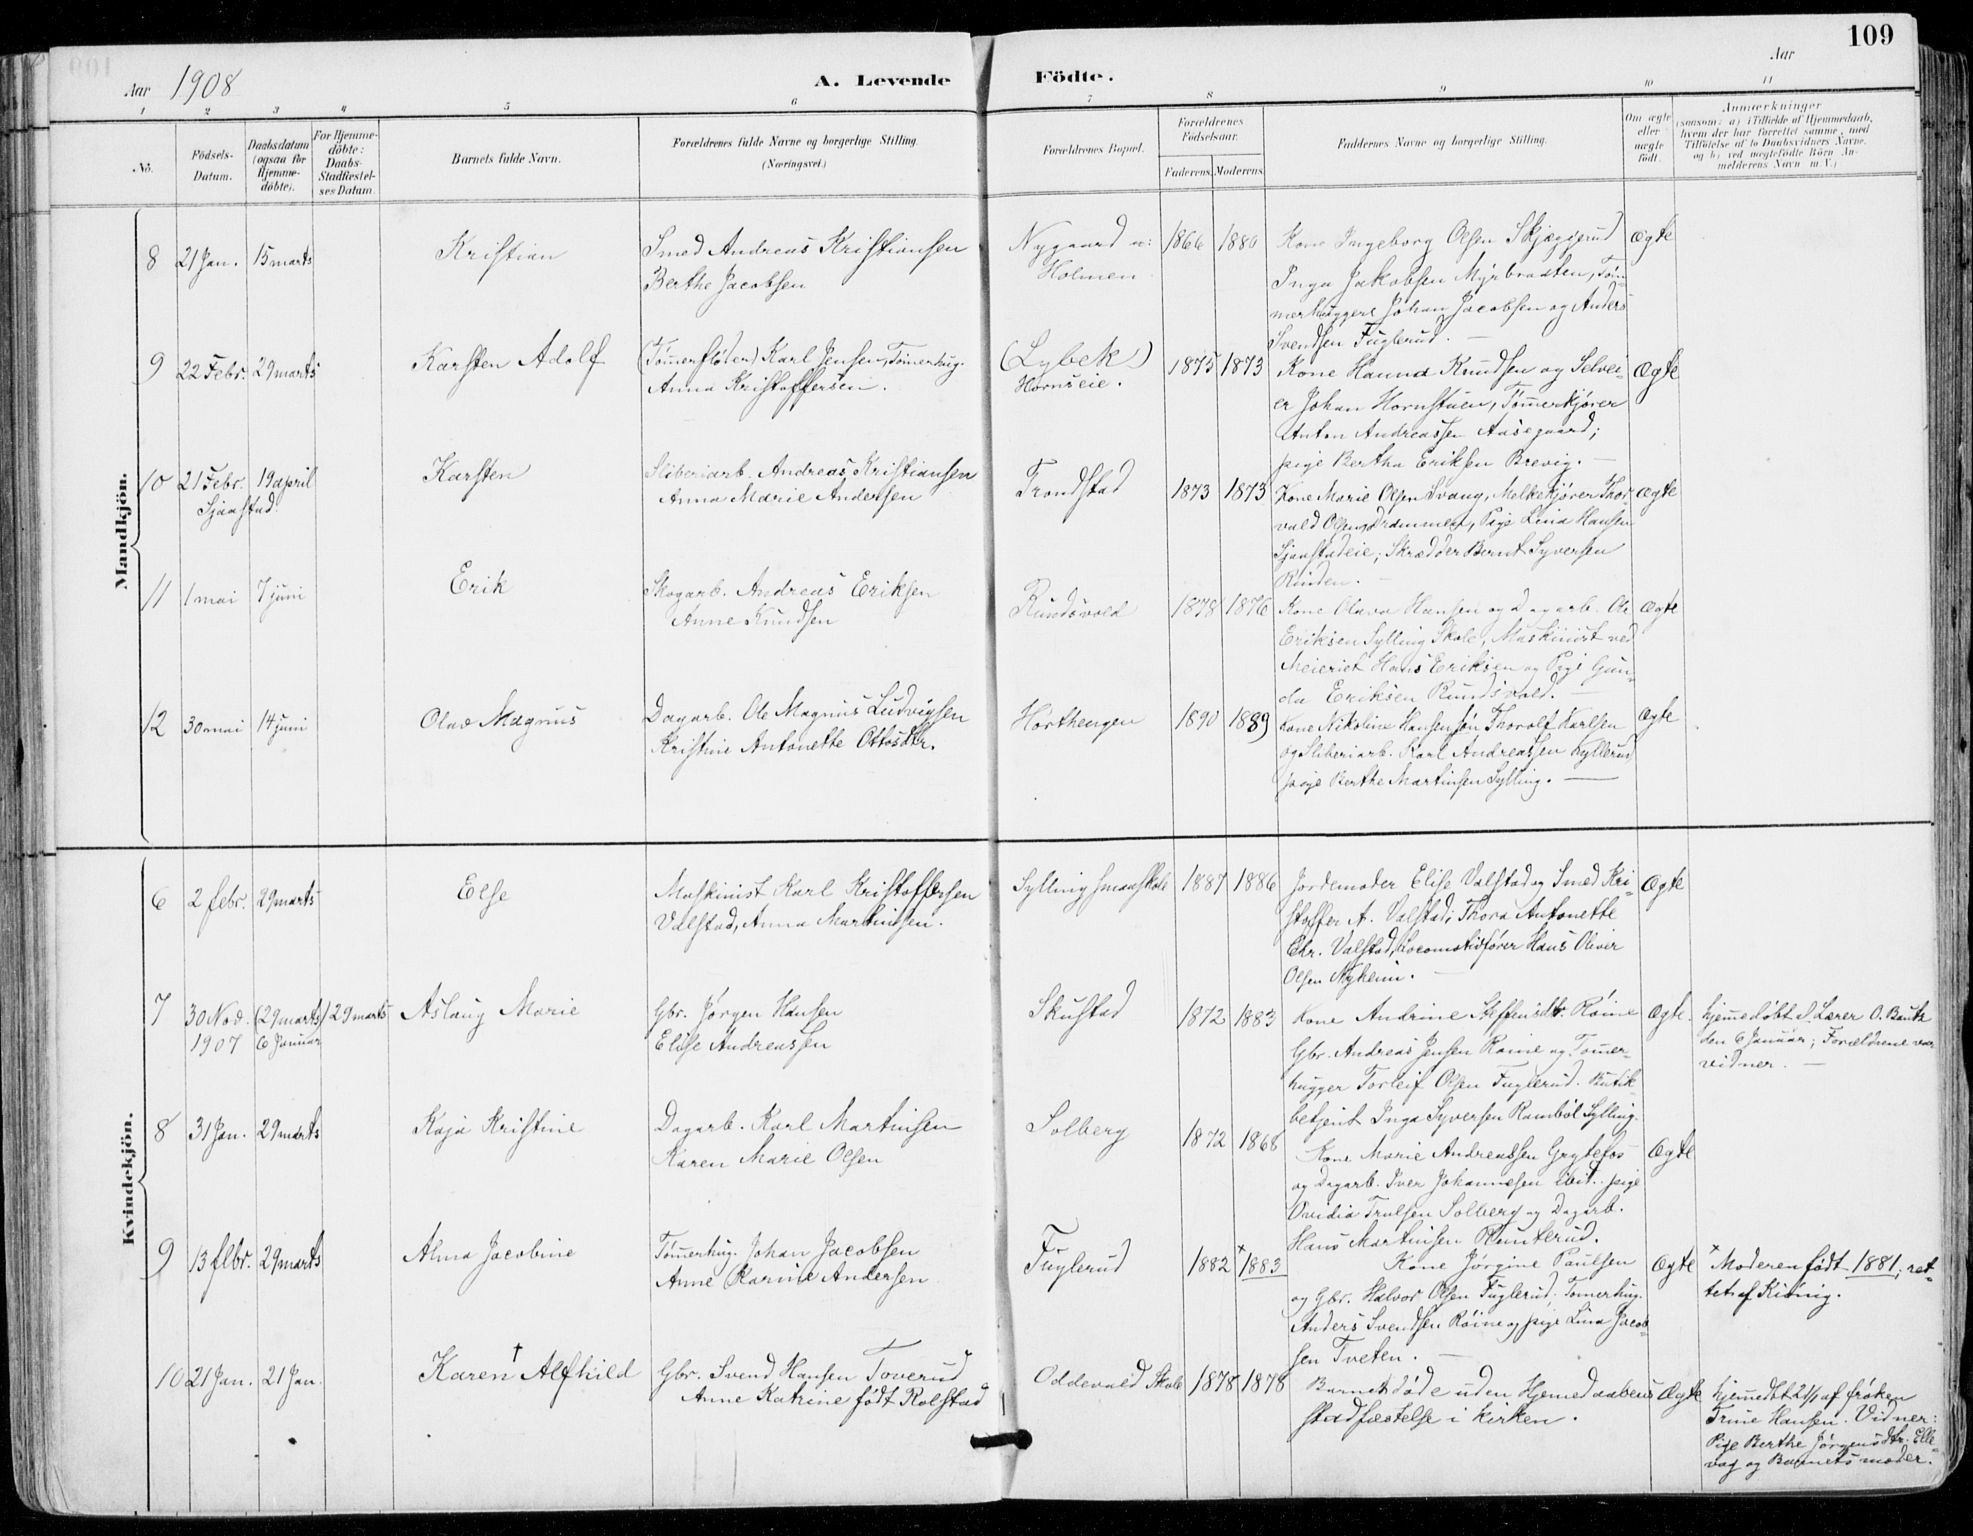 109
Aar 1908
A. Levende Födte.
Aar
1 2 3 4 5 6 7 8 9 10 11
No.
Födsels-Datum.
Daabsdatum (ogsaa for Hjemme-döbte).
For Hjemme-döbte: Daabs-Stadfæstel-ses Datum.
Barnets fulde Navn.
Forældrenes fulde Navne og borgerlige Stilling. (Næringsvei.)
Forældrenes Bopæl.
Forældrenes Födselsaar.
Faderens. Moderens.
Faddernes Navne og borgerlige Stilling.
Om ægte eller uægte födt.
Anmærkninger
(saasom: a) i Tilfælde af Hjemmedaab,
hvem der har forrettet samme, med
Tilföielse af to Daabsvidners Navne.
og b) ved uægtefödte Börn An-
melderens Navn m. V.)
Mandkjön.
8 21 Jan. 15 marts
Kristian
Smed Andreas Kristiansen
Berthe Jacobsen
Nygaard u:
Holmen
1866 1880
Kone Ingeborg Olsen Skjæggerud
Inga Jakobsen Myrbraaten, Töm-
merhuggers Johan Jacobsen og Anders
Svendsen Fuglerud.
Ægte
9 22 Febr. 29 marts
Karsten Adolf
(Tömerfløder) Karl Jensen, Tömerhug.
Anna Kristoffersen.
(Lybek)
Hornseie.
1875 1873
Kone Hanna Knudsen og Selvei-
er Johan Hornstuen, Tömerkjörer
Anton Andreassen Aasegaard;
pige Bertha Eriksen Brevig.
Ægte
10 21 Febr. 19 april
Sjaastad
Karsten
Sliberiarb. Andreas Kristiansen
Anna Marie Andersen
Trondstad
1873 1873
Kone Marie Olsen Svang, Melkekjører Thor-
vald Olsen, Drammen, Pige Lina Hansen
Sjaastadeie; Skrædder Bernt Syversen
Rinden.
Ægte
11 1 mai 7 juni
Erik
Skogarb. Andreas Eriksen
Anne Knudsen
Rundsvold
1878 1876
Kone Olava Hansen og Dagarb. Ole
Eriksen Sylling Skole, Maskinist ved
Meieriet Hans Eriksen og Pige Gun-
da Eriksen Rundsvold.
Ægte
12 30 mai 14 juni
Olav Magnus
Dagarb. Ole Magnus Ludvigsen
Kristine Antonette Ottosdtr.
Hørthengen
1890 1889
Kone Nikoline Hansen, Thorolf Karlsen
og Sliberiarb. Karl Andreassen Gyllerud
pige Berthe Martinsen Sylling.
Ægte
Kvindekjön.
6 2 febr. 29 marts
Else
Maskinist Karl Kristoffersen
Valstad, Anna Martinsen.
Sylling smaaskole
1887 1886
Jordemoder Elise Valstad og Smed Kri-
stoffer A. Valstad; Thora Antonette
Chr. Valstad, Locomotivförer Hans Oliver
Olsen Nyheim.
Ægte
7 30 Nov. 1907 (29 marts) 6 Januar 29 marts
Aslaug Marie
Gbr. Jörgen Hansen
Elise Andreassen
Skustad
1872 1883
Kone Andrine Steffensdtr. Röine
Gbr. Andreas Jensen Röine og Tömer-
hugger Torleif Olsen Fuglerud. Butik-
betjent Inga Syversen Rambøl Sylling.
Ægte.
hjemedøbt af Lærer O. Bauth
den 6 Januar; Forældrene var
vidner.
8 31 Jan. 29 marts
Kaja Kristine
Dagarb. Karl Martinsen
Karen Marie Olsen
Solberg
1872 1868
Kone Marie Andreassen Grytefos
og Dagarb. Iver Johannesen ibit. pige
Ovidia Trulsen Solberg og Dagarb.
Hans Martinsen Runterud.
Ægte
9 13 febr. 29 marts
Alma Jacobine
Tömerhug. Johan Jacobsen
Anne Karine Andersen
Fuglerud
1882 × 1883
Kone Jørgine Paulsen
og Gbr. Halvor Olsen Fuglerud; Tömerhug.
Anders Svendsen Röine og pige Lina Jacob-
sen Tveten.
Ægte
× Moderen født 1881; ret-
tet af Kiönig.
10 21 Jan. 21 Jan.
Karen † Alfhild
Gbr. Svend Hansen Toverud
Anne Katrine født Rolstad
Oddevald Skole
1878 1878
Barnet døde uden Hjemedaabens
stadfæstelse i kirken.
Ægte
hjemedbt 21/1 af frøken
Trine Hansen. Vidner:
Pige Berthe Jørgensdtr. Elle-
vog og Barnets moder.